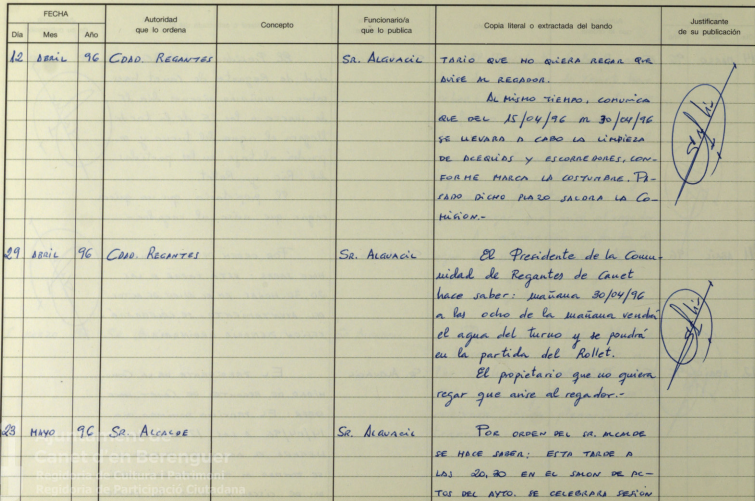 FECHA
Día Mes Año
Autoridad
que lo ordena
Concepto
Funcionario/a
que lo publica
Copia literal o extractada del bando
Justificante
de su publicación
12 ABRIL 96 CDAD. REGANTES SR. ALGUACIL TARIO QUE NO QUIERA REGAR QUE
AVISE AL REGADOR.
AL MISMO TIEMPO, COMUNICA
QUE DEL 15/04/96 AL 30/04/96
SE LLEVARA A CABO LA LIMPIEZA
DE ACEQUIAS Y ESCORREDORES, CON-
FORME MARCA LA COSTUMBRE. PA-
SADO DICHO PLAZO SALDRA LA CO-
MISION.-
29 ABRIL 96 CDAD. REGANTES SR. ALGUACIL El Presidente de la Comu-
nidad de Regantes de Canet
hace saber: mañana 30/04/96
a las ocho de la mañana vendrá
el agua del turno y se pondrá
en la partida del Rollet.
El propietario que no quiera
regar que avise al regador.-
23 MAYO 96 SR. ALCALDE SR. ALGUACIL POR ORDEN DEL SR. ALCALDE
SE HACE SABER: ESTA TARDE A
LAS 20,30 EN EL SALON DE AC-
TOS DEL AYTO. SE CELEBRARA SESIÓN
Canet d'en Berenguer
Cultura i Patrimoni
Regidoria de Participació Ciutadana